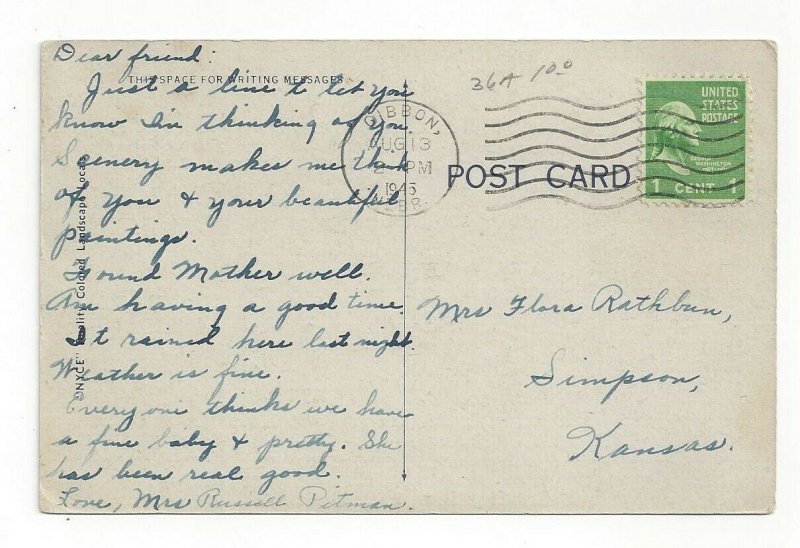 Dear friend:
THIS SPACE FOR WRITING MESSAGES
Just a line to let you
know I'm thinking of you.
Scenery makes me think
of you & your beautiful
paintings.
Found Mother well.
Am having a good time.
It rained here last night.
Weather is fine.
Every one thinks we have
a fine baby & pretty. She
has been real good.
Love, Mrs Russell Pitman.
"NYCE" Quality Colored Landscape Local
36A 1.00
GIBBON,
AUG 13
2 PM
1945
NEBR.
POST CARD
UNITED
STATES
POSTAGE
GEORGE
WASHINGTON
1 CENT 1
Mrs Flora Rathbun,
Simpson,
Kansas.